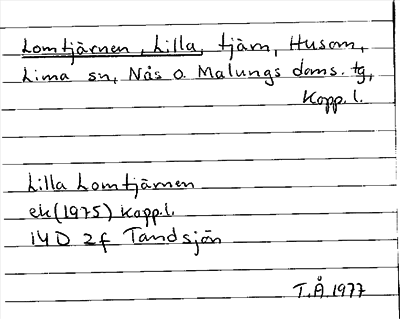 Lomtjärnen, Lilla, tjärn, Husom,
Lima sn, Nås o. Malungs doms. tg,
Kopp. l.
Lilla Lomtjärnen
ek (1975) Kopp.l.
14D 2f Tandsjön
T.Å. 1977